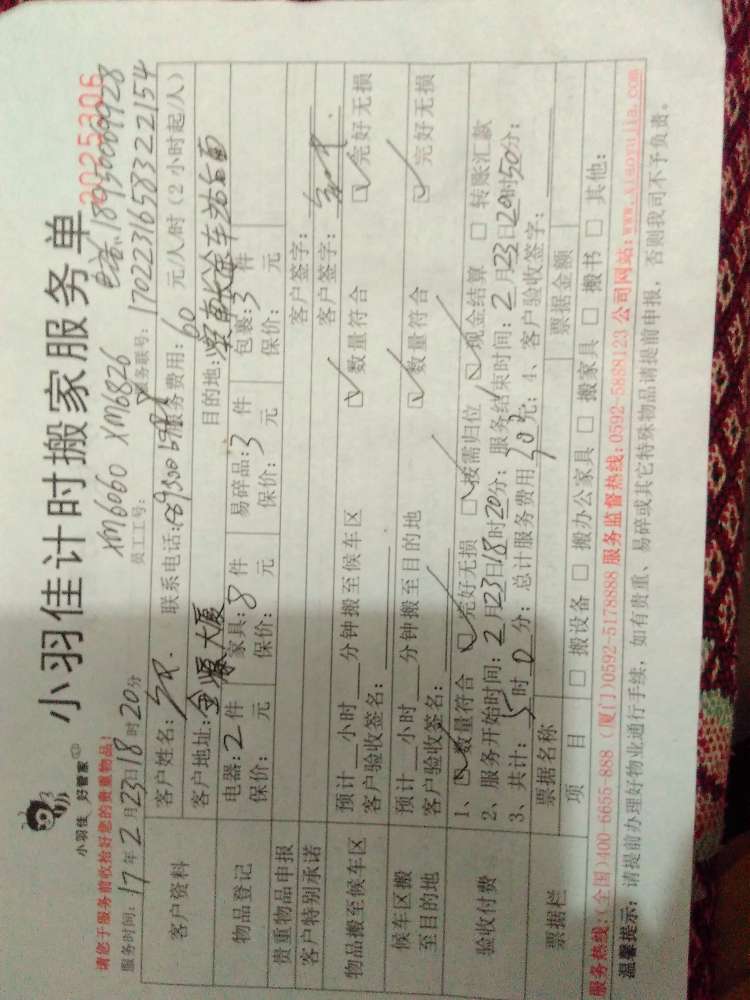 小羽佳 好管家
小羽佳计时搬家服务单
2025206
请您于服务前收拾好您的贵重物品!
XM6060 XM6826
18950009928
服务时间: 17年2月23日18时20分
员工工号:
服务联号: 1702231658322154
客户资料
客户姓名:
联系电话:
服务费用: 60 元/人/时 (2小时起/人)
客户地址: 金源大厦
目的地:
物品登记
电器: 2件 家具: 8件 易碎品: 3件 包裹: 3件
保价: 元 保价: 元 保价: 元 保价: 元
贵重物品申报
客户签字:
客户特别承诺
客户签字:
物品搬至候车区
预计 小时 分钟搬至候车区 ☑数量符合 ☑完好无损
客户验收签名:
候车区搬至目的地
预计 小时 分钟搬至目的地 ☑数量符合 ☑完好无损
客户验收签名:
验收付费
1、☑数量符合 ☑完好无损 ☑按需归位 ☑现金结算 □转账汇款
2、服务开始时间: 2月23日18时20分; 服务结束时间: 2月23日20时50分;
3、共计: 5时0分; 总计服务费用 元; 4、客户验收签字:
票据栏
票据名称 票据金额
项目 □搬设备 □搬办公家具 □搬家具 □搬书 □其他:
服务热线:(全国)400-6655-888 (厦门)0592-5178888 服务监督热线:0592-5888123 公司网站:www.xiaoyujia.com
温馨提示: 请提前办理好物业通行手续, 如有贵重、易碎或其它特殊物品请提前申报, 否则我司不予负责。